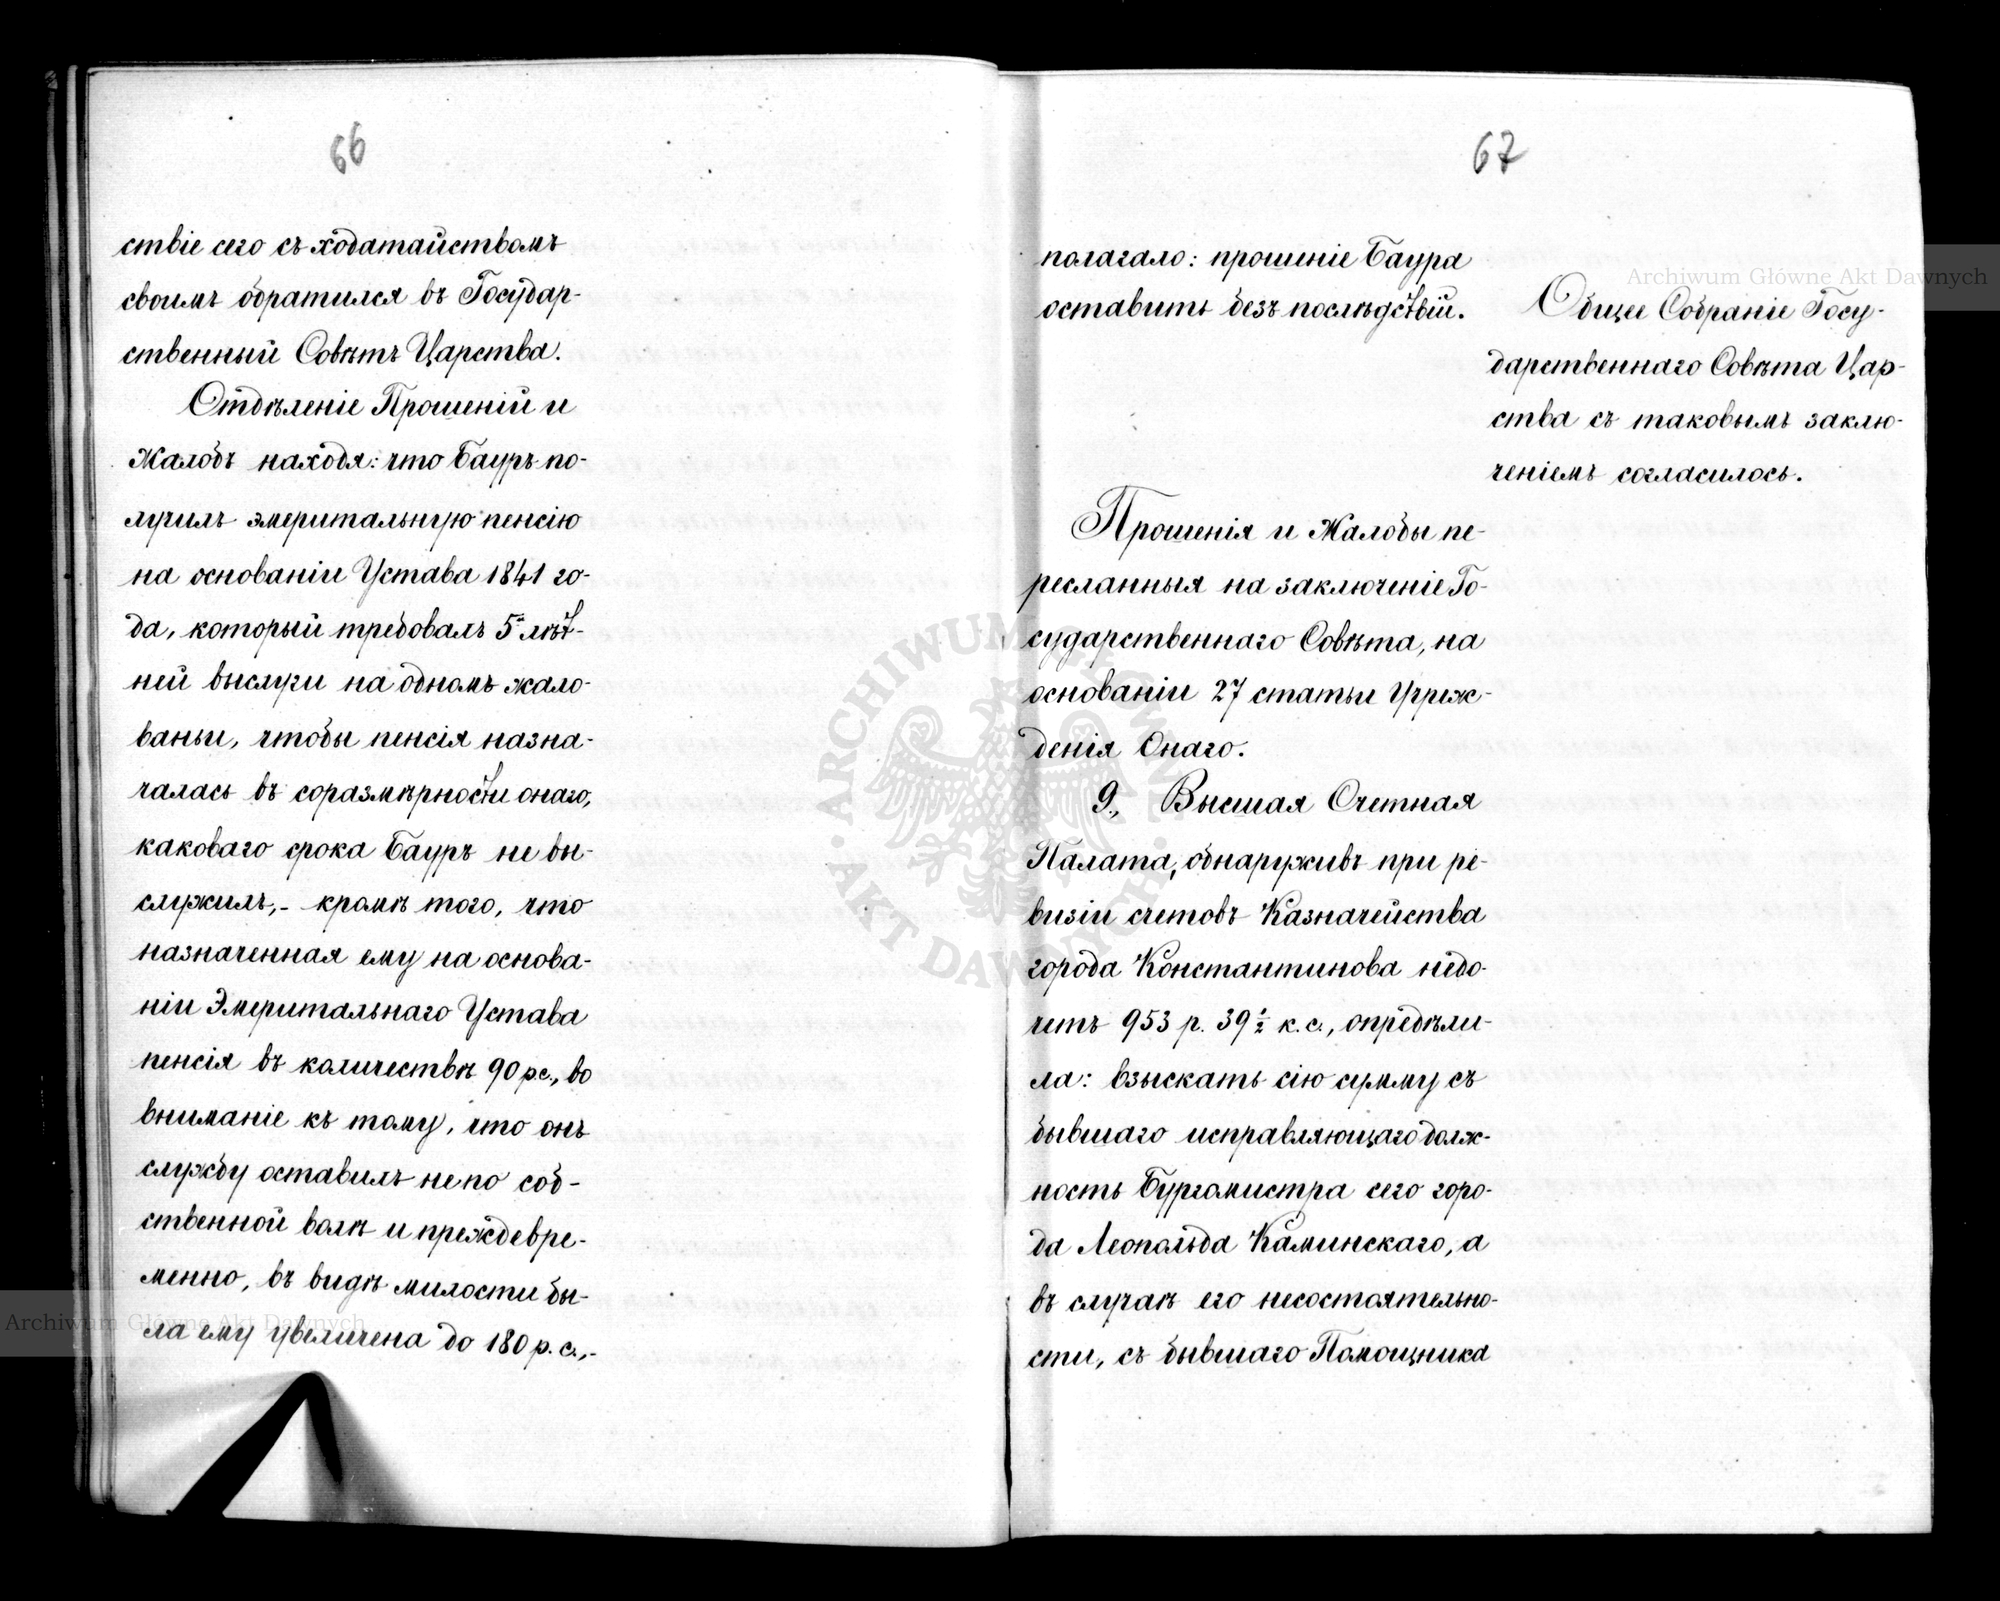 66
ствіе сего съ ходатайствомъ
своимъ обратился въ Государ-
ственный Совѣтъ Царства.
Отдѣленіе Прошеній и
Жалобъ находя: что Бауръ по-
лучилъ эмеритальную пенсію
на основаніи Устава 1841 го-
да, который требовалъ 5и лѣт-
ней выслуги на одномъ жало-
ваньи, чтобы пенсія назна-
чалась въ соразмѣрности онаго,
каковаго срока Бауръ не вы-
служилъ,- кромѣ того, что
назначенная ему на основа-
ніи Эмеритальнаго Устава
пенсія въ количествѣ 90 р.с., во
вниманіе къ тому, что онъ
службу оставилъ не по соб-
ственной волѣ и преждевре-
менно, въ видѣ милости бы-
ла ему увеличена до 180 р. с.,-
67
полагало: прошеніе Баура
оставить безъ послѣдствій.
Общее Собраніе Госу-
дарственнаго Совѣта Цар-
ства съ таковымъ заклю-
ченіемъ согласилось.
Прошенія и Жалобы пе-
ресланныя на заключеніе Го-
сударственнаго Совѣта, на
основаніи 27 статьи Учреж-
денія Онаго.
9., Высшая Счетная
Палата, обнаруживъ при ре-
визіи счетовъ Казначейства
города Константинова недо-
четъ 953 р. 39 1/2 к. с., опредѣли-
ла: взыскать сію сумму съ
бывшаго исправляющаго долж-
ность Бургомистра сего горо-
да Леопольда Каминскаго, а
въ случаѣ его несостоятельно-
сти, съ бывшаго Помощника
Archiwum Główne Akt Dawnych
Archiwum Główne Akt Dawnych
ARCHIWUM GŁÓWNE
AKT DAWNYCH